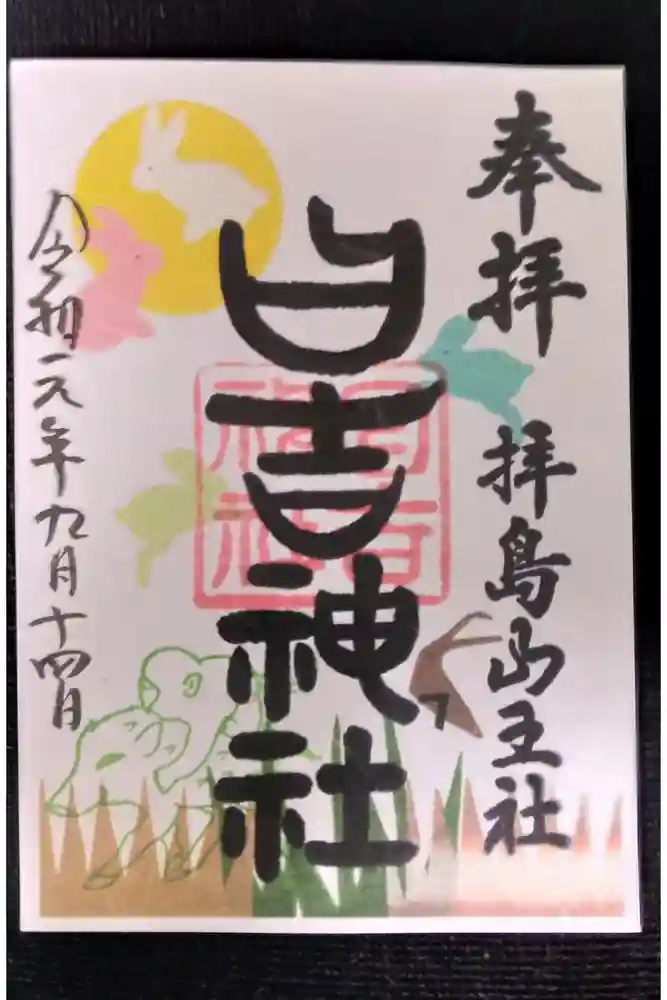 奉拝 拝島山王社
日吉神社
日吉
神社
令和元年九月十四日